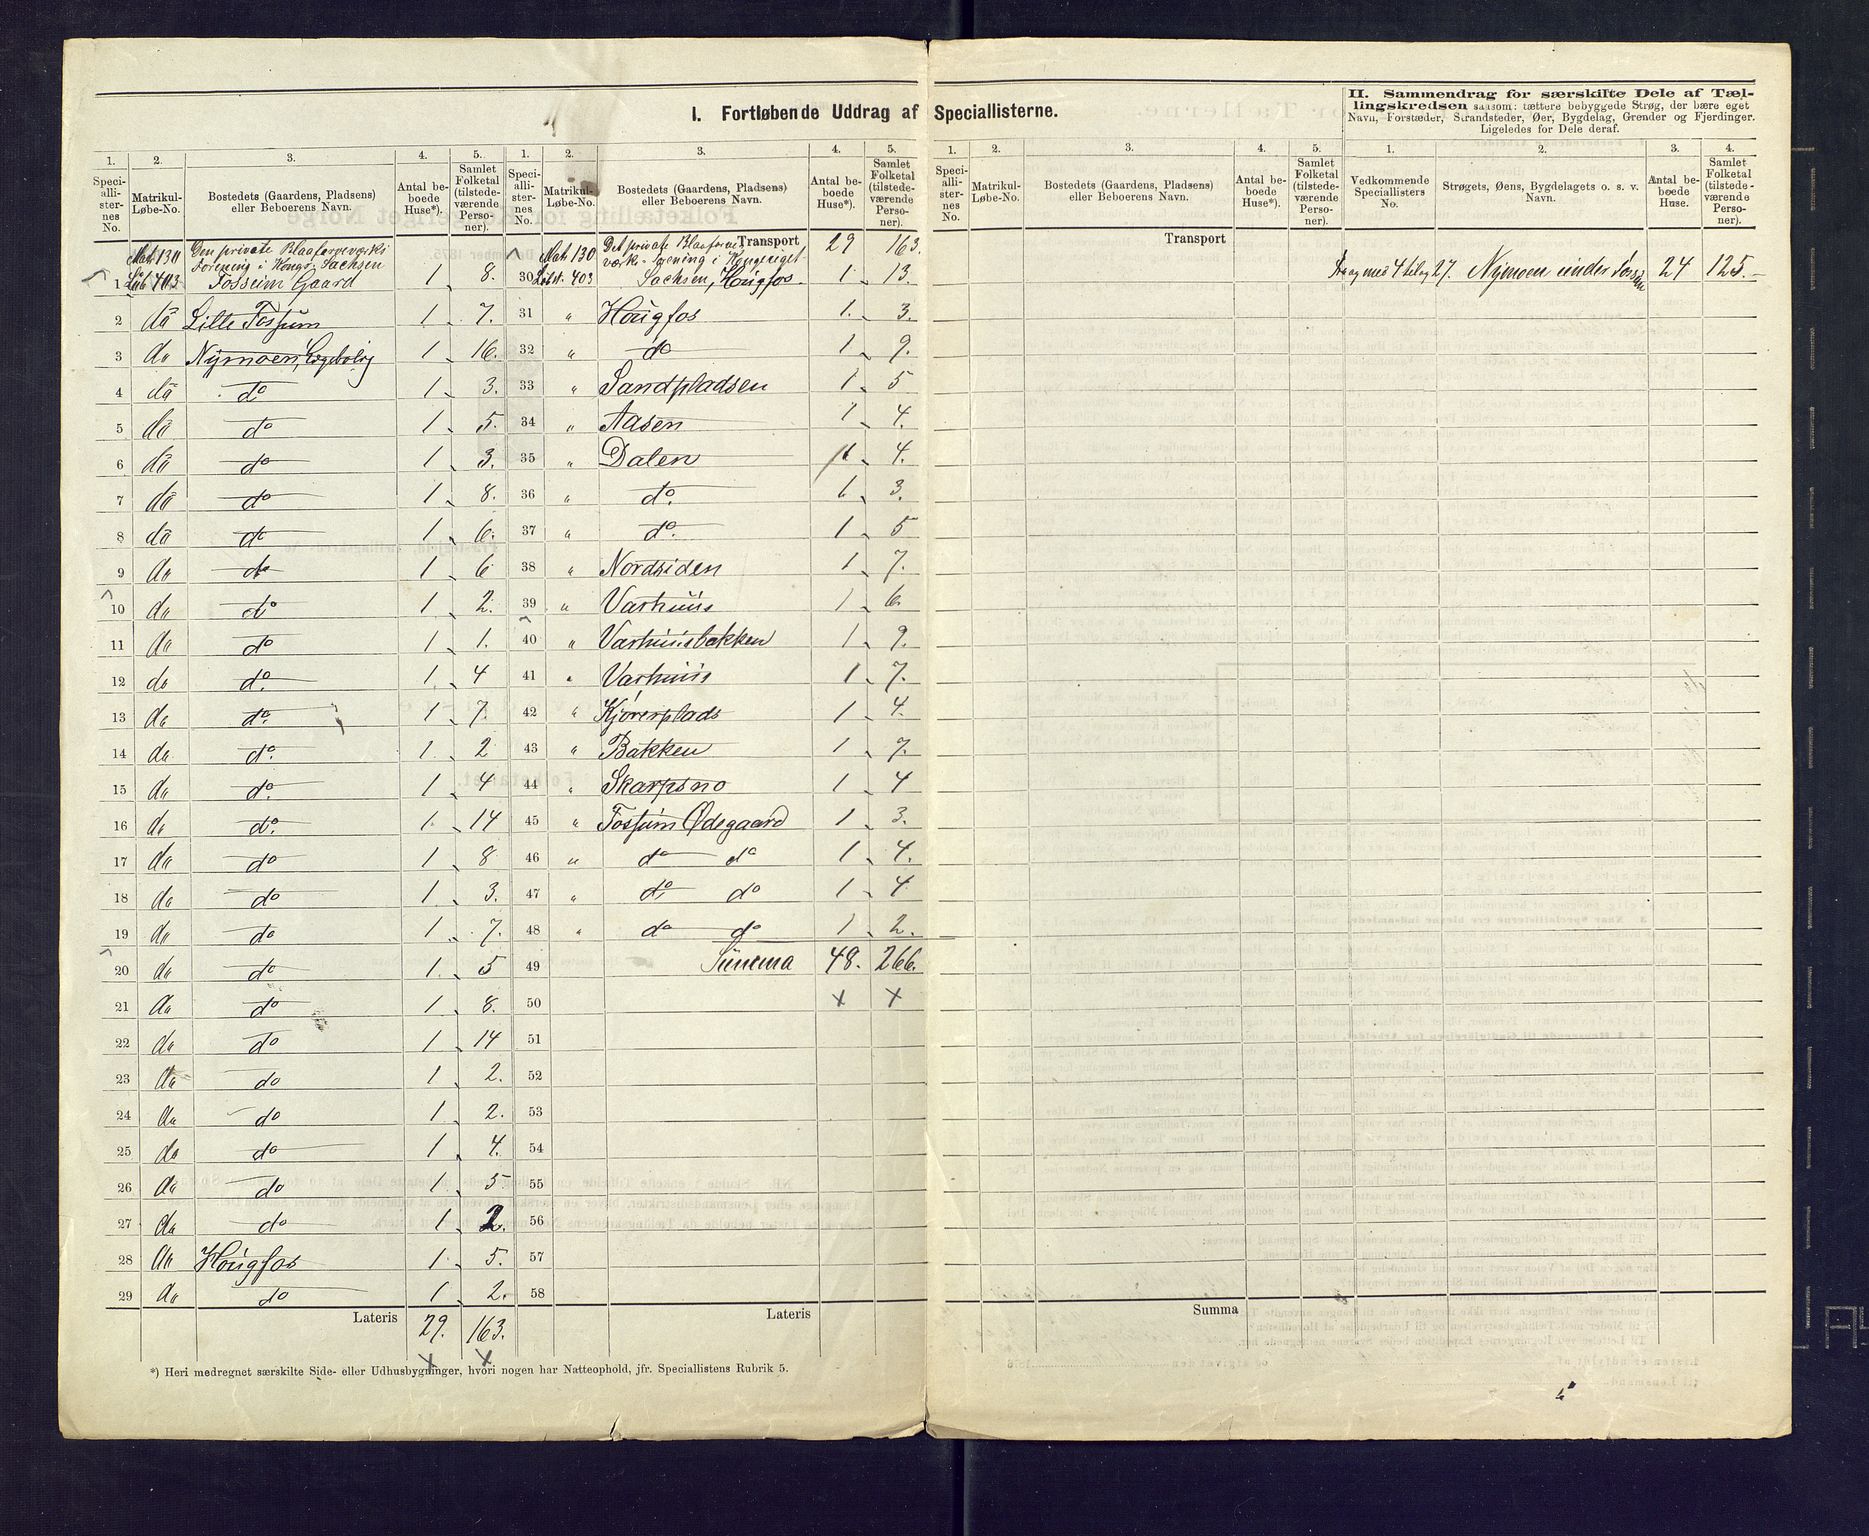 I. Fortløbende Uddrag af Speciallisterne.
II. Sammendrag for særskilte Dele af Tæl-
lingskredsen saasom: tættere bebyggede Strøg, der bære eget
Navn, Forstæder, Strandsteder, Øer, Bygdelag, Grender og Fjerdinger.
Ligeledes for Dele deraf.
1. 2. 3. 4. 5. 1. 2. 3. 4. 5. 1. 2. 3. 4. 5. 1. 2. 3. 4.
Speci-
alli-
ster-
nes
No.
Matrikul-
Løbe-No.
Bostedets (Gaardens, Pladsens)
eller Beboerens Navn.
Antal be-
boede
Huse*).
Samlet
Folketal
(tilstede-
værende
Perso-
ner).
Speci-
alli-
ster-
nes
No.
Matrikul-
Løbe-No.
Bostedets (Gaardens, Pladsens)
eller Beboerens Navn.
Antal be-
boede
Huse*).
Samlet
Folketal
(tilstede-
værende
Perso-
ner).
Speci-
alli-
ster-
nes
No.
Matrikul-
Løbe-No.
Bostedets (Gaardens, Pladsens)
eller Beboerens Navn.
Antal be-
boede
Huse*).
Samlet
Folketal
(tilstede-
værende
Perso-
ner).
Vedkommende
Speciallisters
No.
Strøgets, Øens, Bygdelagets o. s. v.
Navn.
Antal be-
boede
Huse.
Samlet
Folketal
(tilstede-
værende
Perso-
ner).
Mat. 130 Den private Blaafarveværks
Forening i Kongr. Sachsen
1 Løb 403 Fossum Gaard 1 8.
2 do Lille Fossum 1 7.
3 do Nymoen, 1 16.
4 do do 1 3.
5 do do 1 5.
6 do do 1 3.
7 do do 1 8.
8 do do 1 6.
9 do do 1 6
10 do do 1 2.
11 do do 1 1.
12 do do. 1 4
13 do do. 1 7.
14 do do. 1 2
15 do do. 1 4
16 do do. 1 14
17 do do 1 8
18 do do 1 3.
19 do do 1 7.
20 do do 1 5
21 do do 1 8.
22 do do 1 14
23 do do 1 2.
24 do do 1 2.
25 do do 1 4.
26 do do 1 5
27 do do 1 2.
28 do Hougfos 1 5.
29 do do 1 2.
Lateris 29. 163.
Transport 29 163.
Mat. 130 Det private Blaafarve-
værks-forening i Kongeriget
30 Løbn. 403 Sachsen, Hougfos 1 13.
31 " Hougfos 1. 3.
32 " do 1 9.
33 " Sandpladsen 1 5
34 " Aasen 1 4.
35 " Dalen 1 4.
36 " do. 1 3.
37 " do. 1 5
38 " Nordsiden 1 7.
39 " Varhuus 1 6
40 " Varhuusbakken 1 9.
41 " Varhuus 1 7.
42 " Kjørerplads 1 4.
43 " Bakken 1 7.
44 " Skarpsno 1 4
45 " Fossum Ødegaard 1 3.
46 " do do 1 4.
47 " do do 1 4
48 " do do 1 2.
49 Summa 48. 266.
50 x x
51
52
53
54
55
56
57
58
Lateris
Transport
Summa
4 til og 27. Nymoen under Fossum 24 125.
*) Heri medregnet særskilte Side- eller Udhusbygninger, hvori nogen har Natteophold, jfr. Speciallistens Rubrik 5.